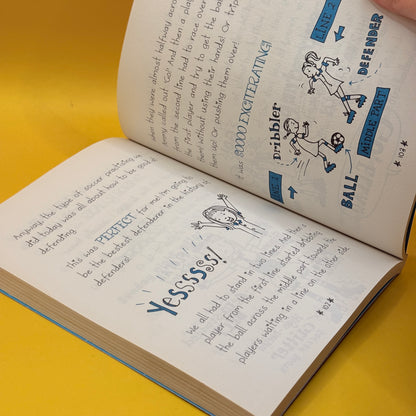 Anyway the type of soccer practising we
did today was all about how to be good at
defending.
This was PERFECT for me! I'm going to
be the bestest defenderer in the history of
defenders!
Yesssssss!
We all had to stand in two lines and then a
player from the first line started dribbling
the ball across the middle part towards the
players waiting in a line on the other side.
*102*
when they were almost halfway across
called out 'Go!' And then a player
from the second line had to race over to
the first player and try to get the ball
them! Without using their hands! Or trip
them up! Or pushing them over!
It was SOOOO EXCITERATING!
LINE 2
DEFENDER
Dribbler
MIDDLE PART
BALL
*103*